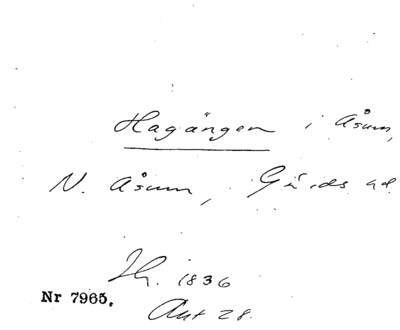 Hagängen i Åsum,
N. Åsum, Gärds hd
Jh. 1836
Nr 7965.
Akt 28.